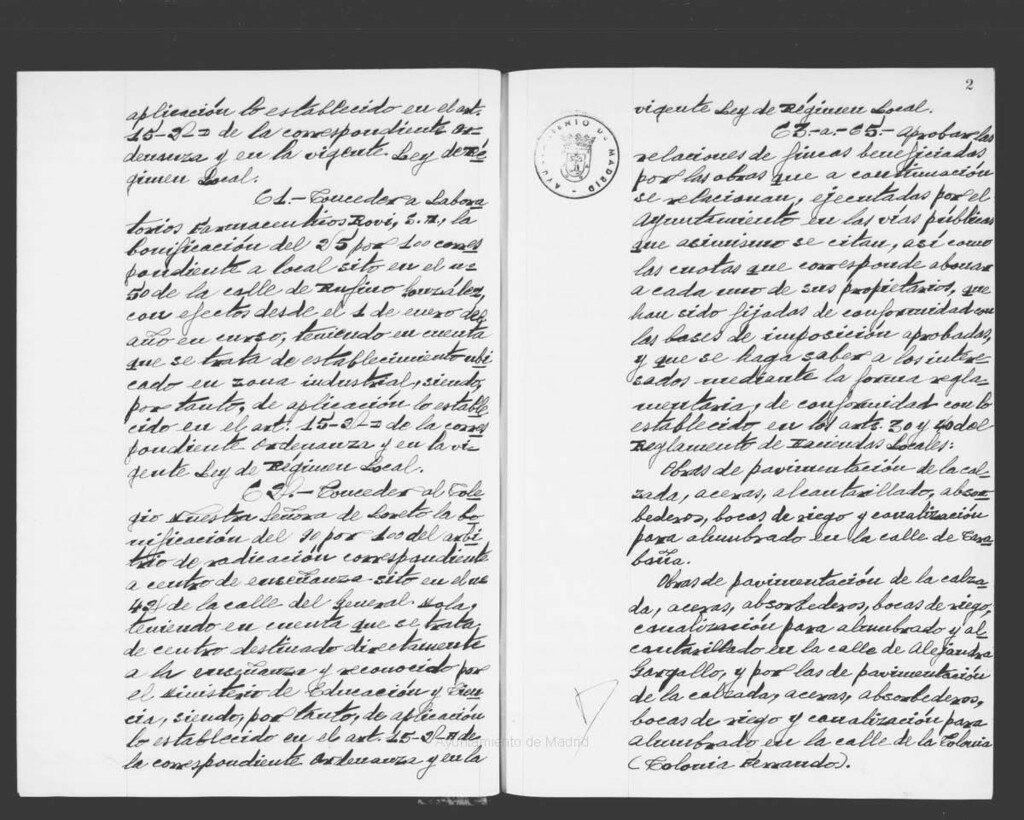 aplicación lo establecido en el art.
15-2-a de la correspondiente Or-
denanza y en la vigente Ley de Ré-
gimen Local.
61.- Conceder a Labora
torios Farmaceuticos Rovi, S.A., la
bonificación del 25 por 100 corres
pondiente a local sito en el nº
50 de la calle de Rufino González,
con efectos desde el 1 de enero del
año en curso, teniendo en cuenta
que se trata de establecimiento ubi
cado en zona industrial, siendo,
por tanto, de aplicación lo estable
cido en el art. 15-2-a de la corres
pondiente Ordenanza y en la vi-
gente Ley de Régimen Local.
62.- Conceder al Cole
gio Nuestra Señora de Loreto la bo
nificación del 90 por 100 del arbi
trio de radicación correspondiente
a centro de enseñanza sito en el nº
42 de la calle del General Mola,
teniendo en cuenta que se trata
de centro destinado directamente
a la enseñanza y reconocido por
el Ministerio de Educación y Cien
cia, siendo, por tanto, de aplicación
lo establecido en el art. 15-2-a de
la correspondiente Ordenanza y en la
2
AYUNTAMIENTO DE MADRID
vigente Ley de Régimen Local.
63 a 65.- Aprobar las
relaciones de fincas beneficiadas
por las obras que a continuación
se relacionan, ejecutadas por el
Ayuntamiento en las vías públicas
que asimismo se citan, así como
las cuotas que corresponde abonar
a cada uno de sus propietarios, que
han sido fijadas de conformidad con
las bases de imposición aprobadas,
y que se haga saber a los intere-
sados mediante la forma regla-
mentaria, de conformidad con lo
establecido en los arts. 30 y 40 del
Reglamento de Haciendas Locales:
Obras de pavimentación de la cal-
zada, aceras, alcantarillado, absor-
bederos, bocas de riego y canalización
para alumbrado en la calle de Cara
baña.
Obras de pavimentación de la calza-
da, aceras, absorbederos, bocas de riego,
canalización para alumbrado y al-
cantarillado en la calle de Alejandra
Gargallo, y por las de pavimentación
de la calzada, aceras, absorbederos,
bocas de riego y canalización para
alumbrado en la calle de la Colonia
(Colonia Ferrando).
Ayuntamiento de Madrid